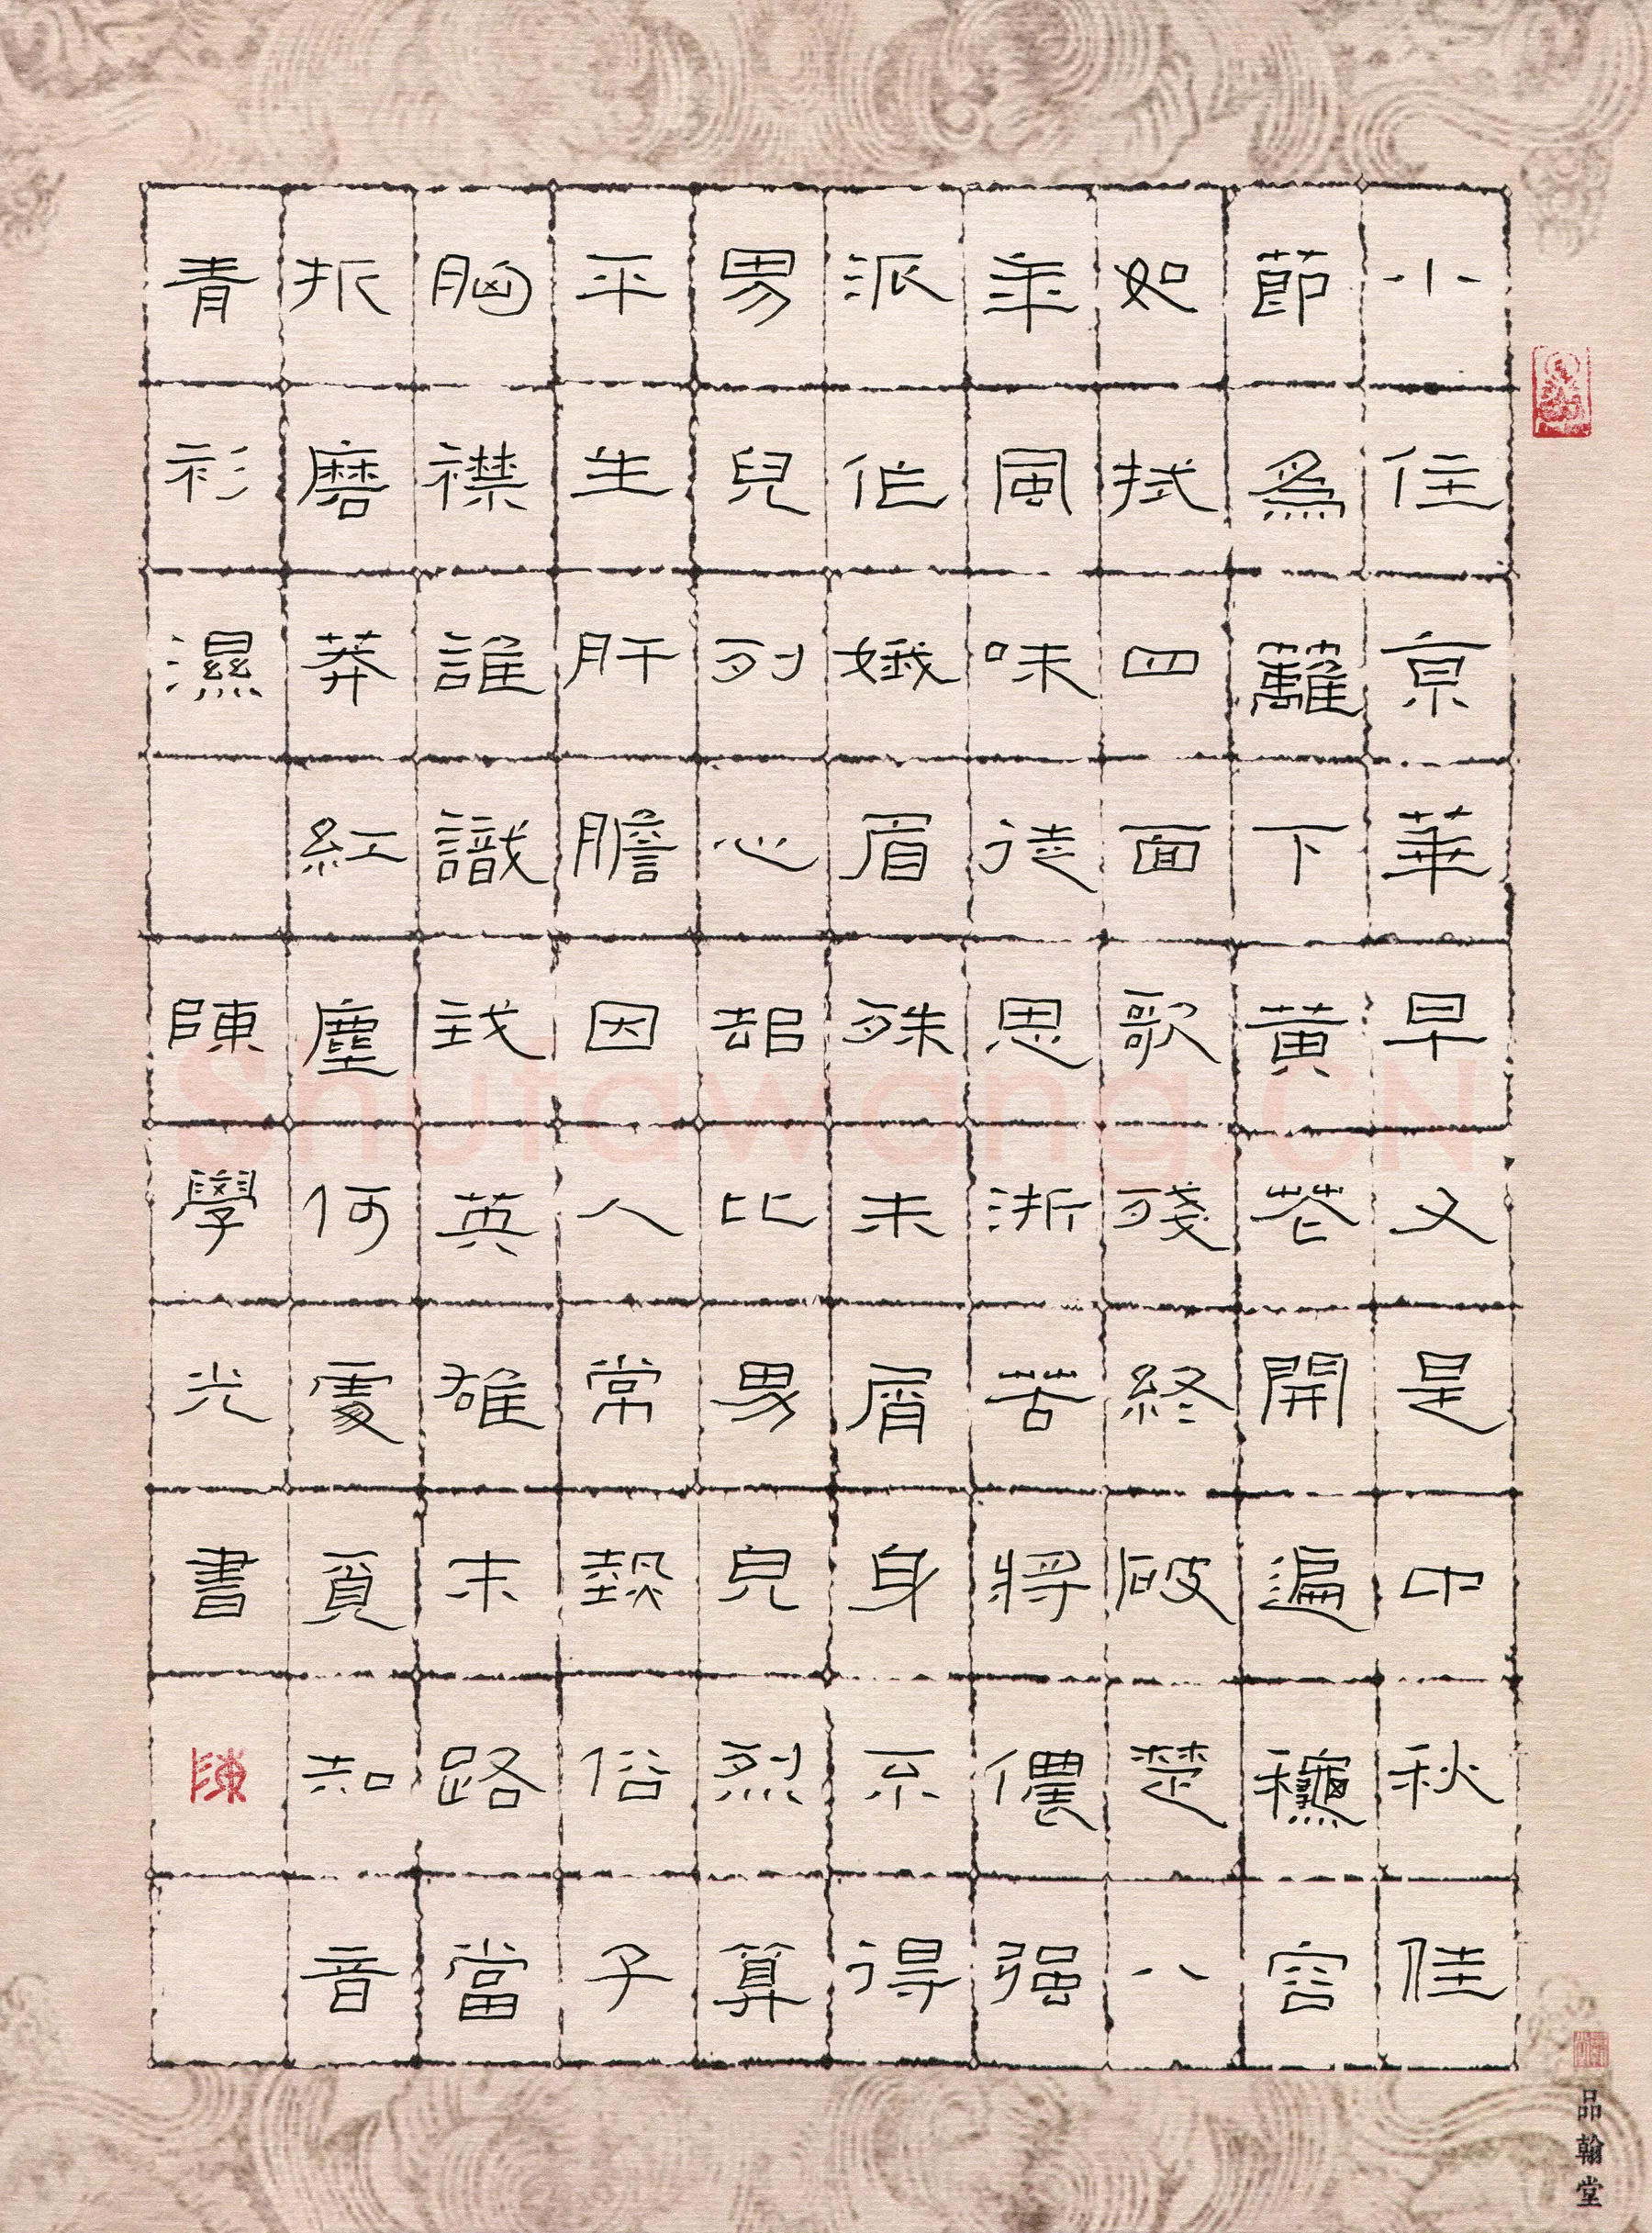 小住京華早又是中秋佳
節爲籬下黃花開遍龝容
如拭四面歌殘終破楚八
年風味徒思浙苦將儂强
派作娥眉殊未屑身不得
男兒列心却比男兒烈算
平生肝膽因人常熱俗子
胸襟誰識我英雄末路當
折磨莽紅塵何處覓知音
青衫濕 陳學光書 陳
品翰堂
Shufawang.CN